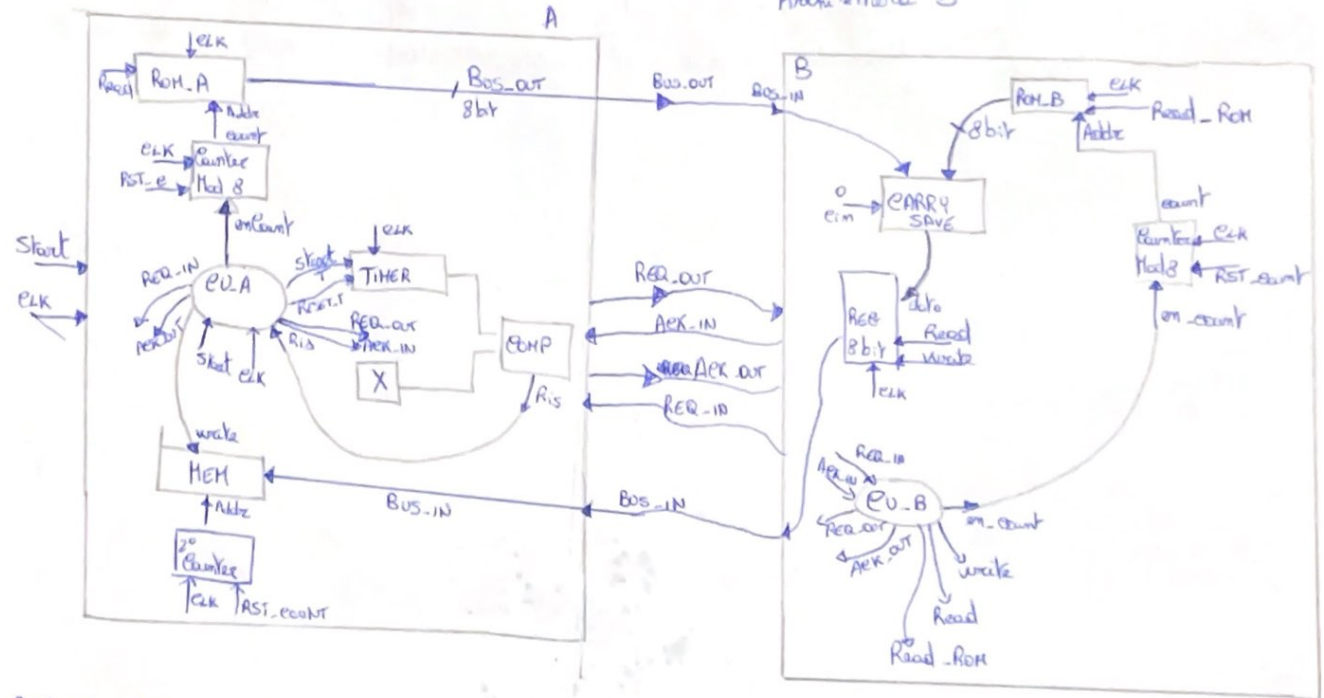 A
CLK
Read
ROM_A
BUS_OUT
8bit
Addr
count
CLK
RST_C
Counter
Mod 8
enCount
Start
CLK
REQ_IN
CU_A
Start
T
CLK
TIMER
RESET_T
REQ_OUT
ACK_IN
ACK_OUT
Start
CLK
Ris
X
COMP
Ris
write
MEM
Addr
2°
Counter
CLK
RST_CONT
BUS_IN
BUS_OUT
BUS_IN
REQ_OUT
ACK_IN
ACK_OUT
REQ_IN
BUS_IN
B
ROM_B
CLK
Read_ROM
Addr
8bit
0
cin
CARRY
SAVE
count
Counter
Mod8
CLK
RST_count
en_count
data
REG
8bit
Read
write
CLK
REQ_IN
ACK_IN
CU_B
REQ_OUT
ACK_OUT
en_count
write
Read
Read_ROM